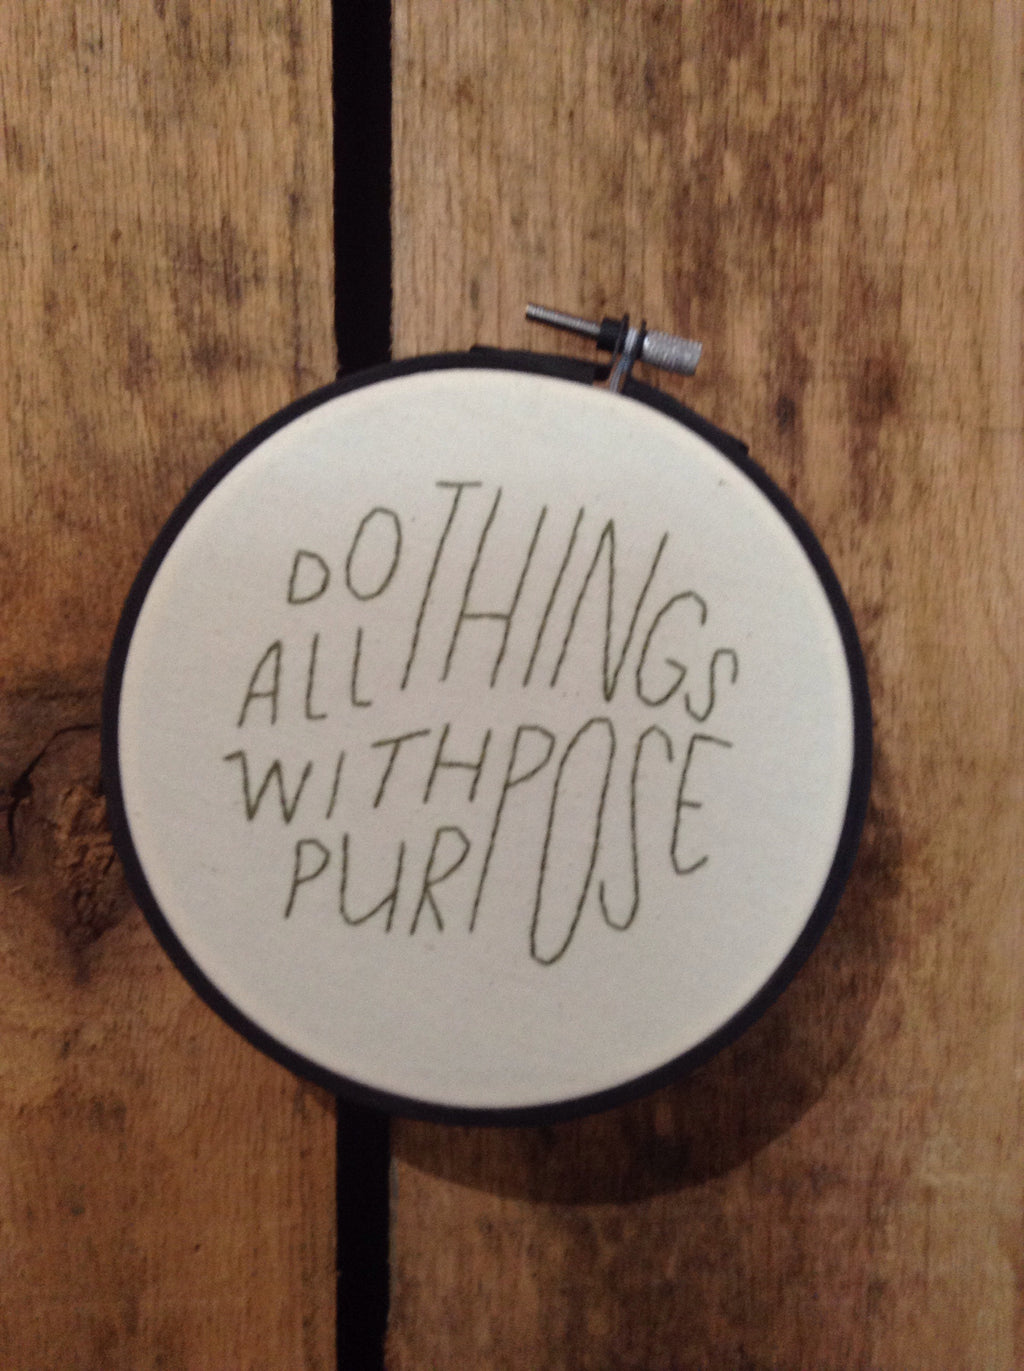 DO
ALL THINGS
WITH
PURPOSE